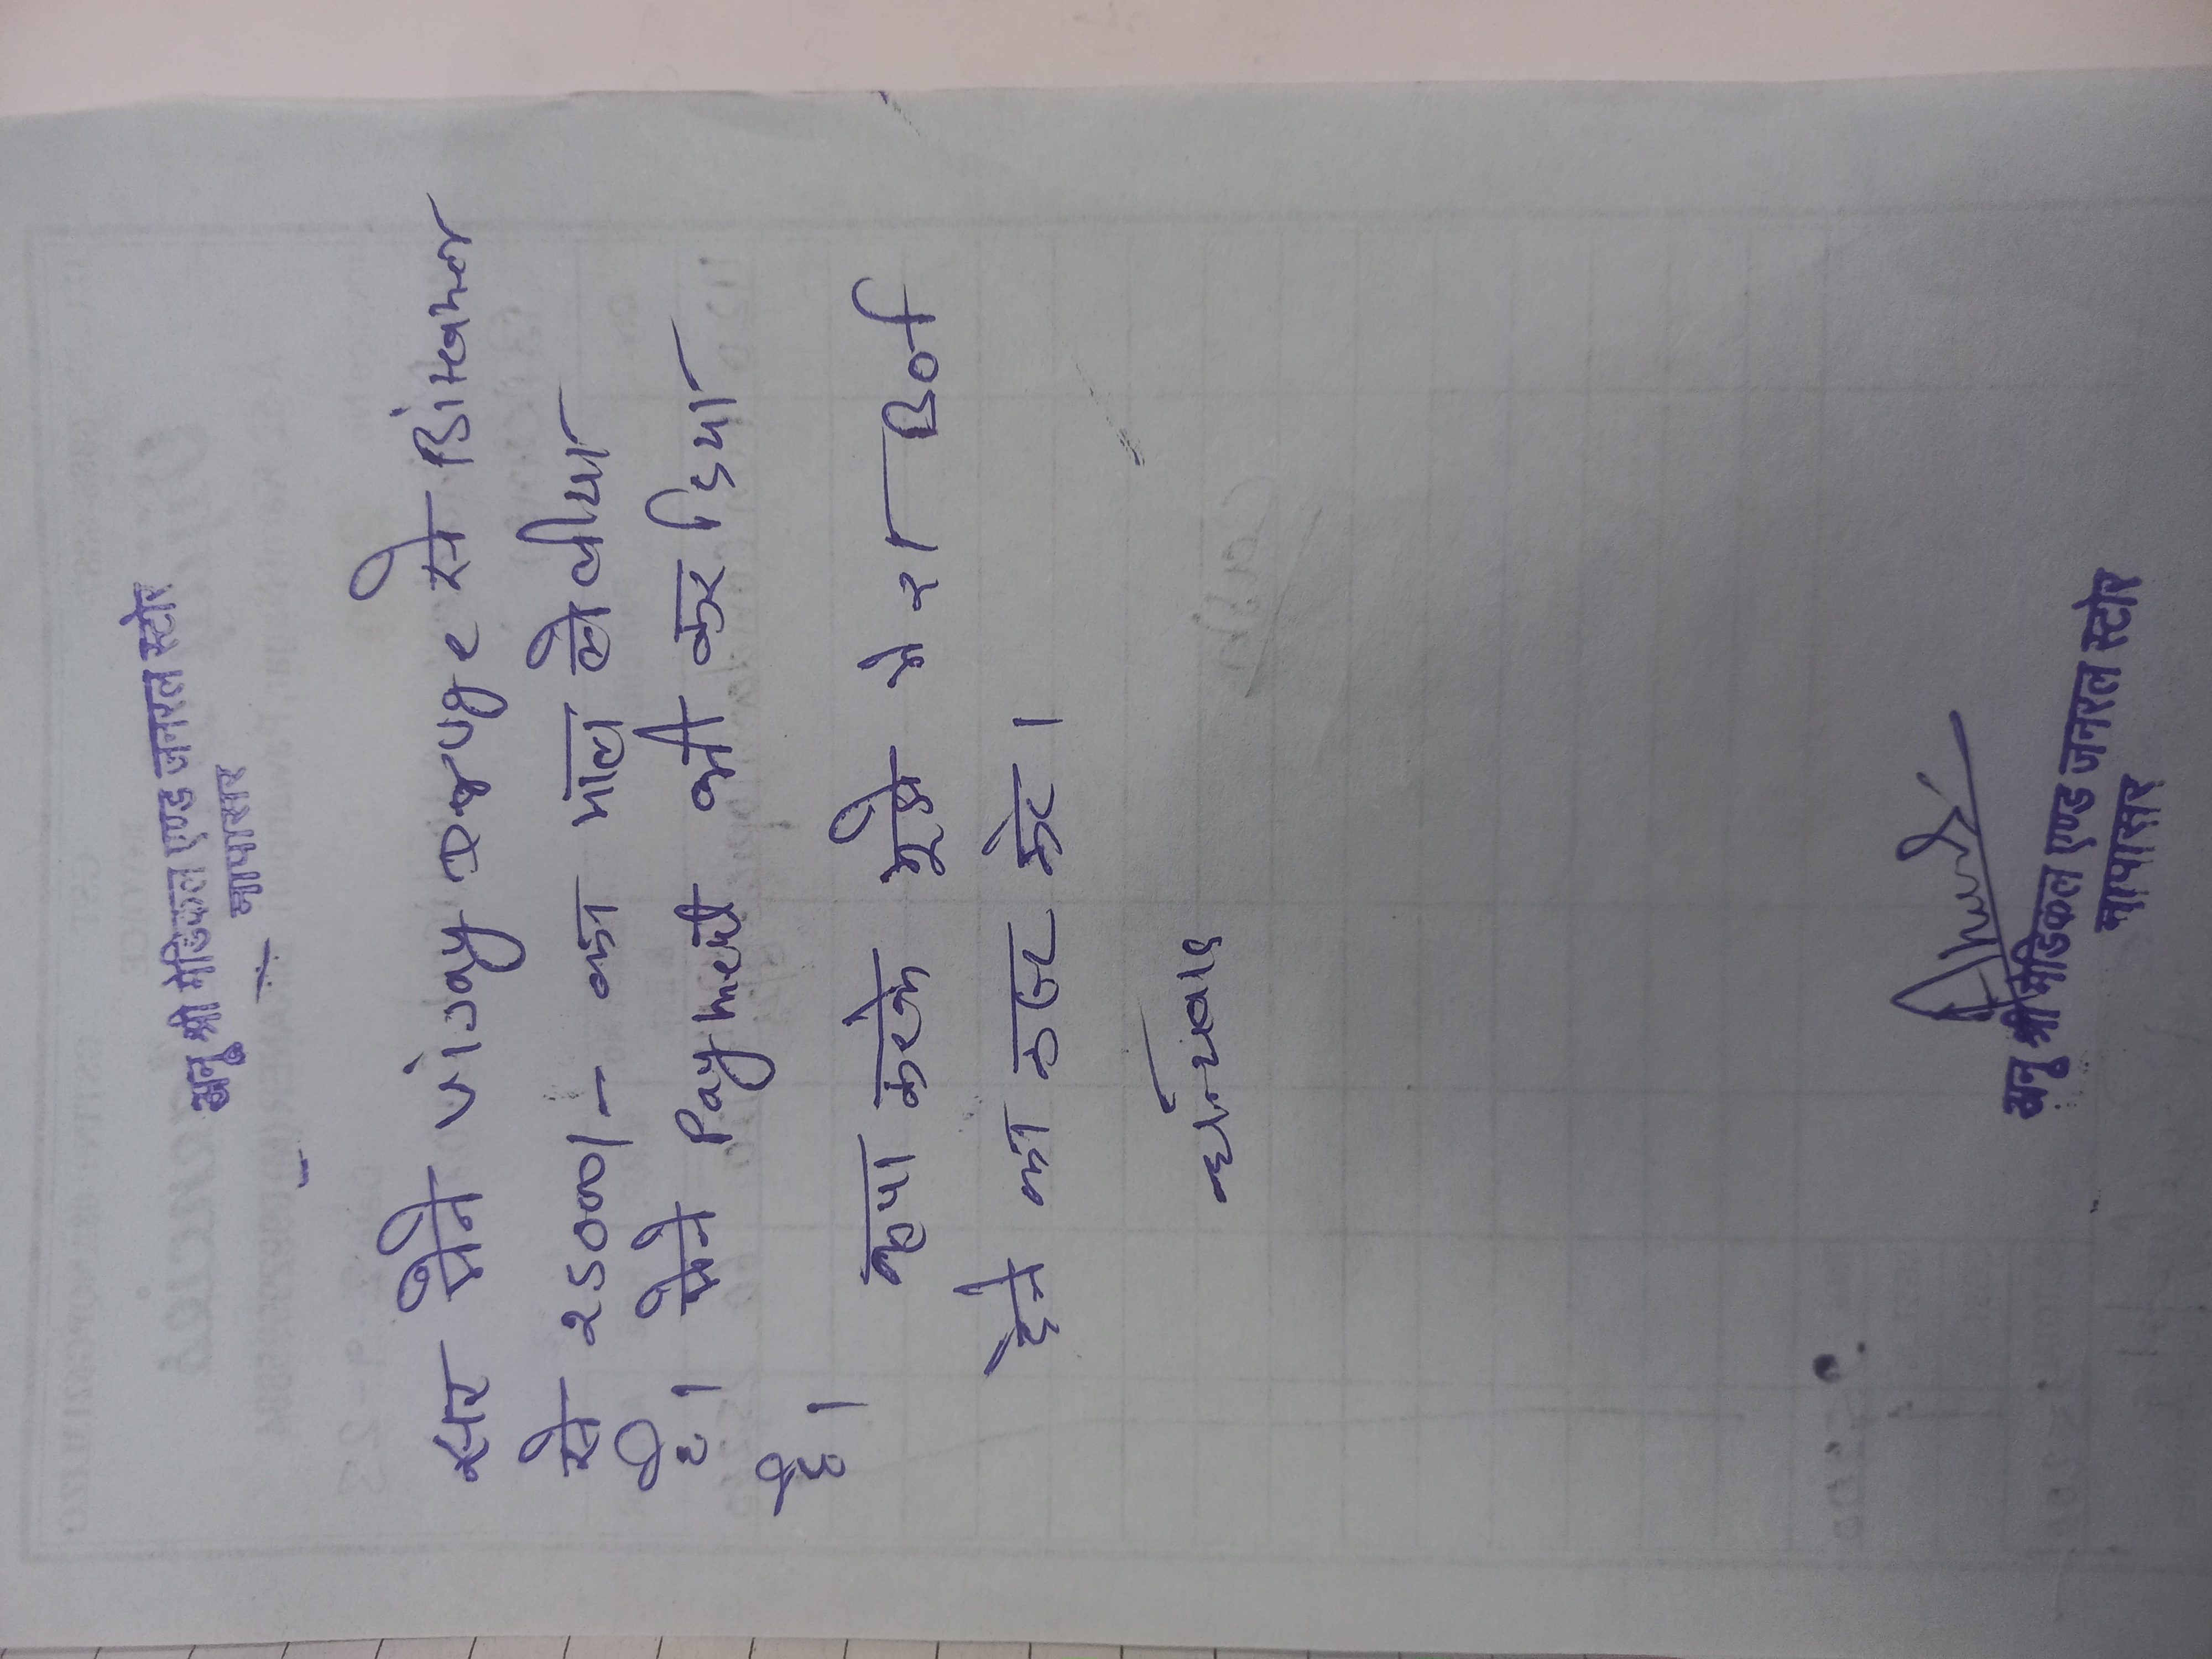 अनु श्री मेडिकल एण्ड जनरल स्टोर
नापासर
सर मैंने Vijay Druge से Bikaner
से 25000/- का माल ले लीया
है। मैंने Payment भी कर दिया
है।
कृपा करके मुझे मेरा Bof
देने का कष्ट करे।
धन्यवाद
अनु श्री मेडिकल एण्ड जनरल स्टोर
नापासर